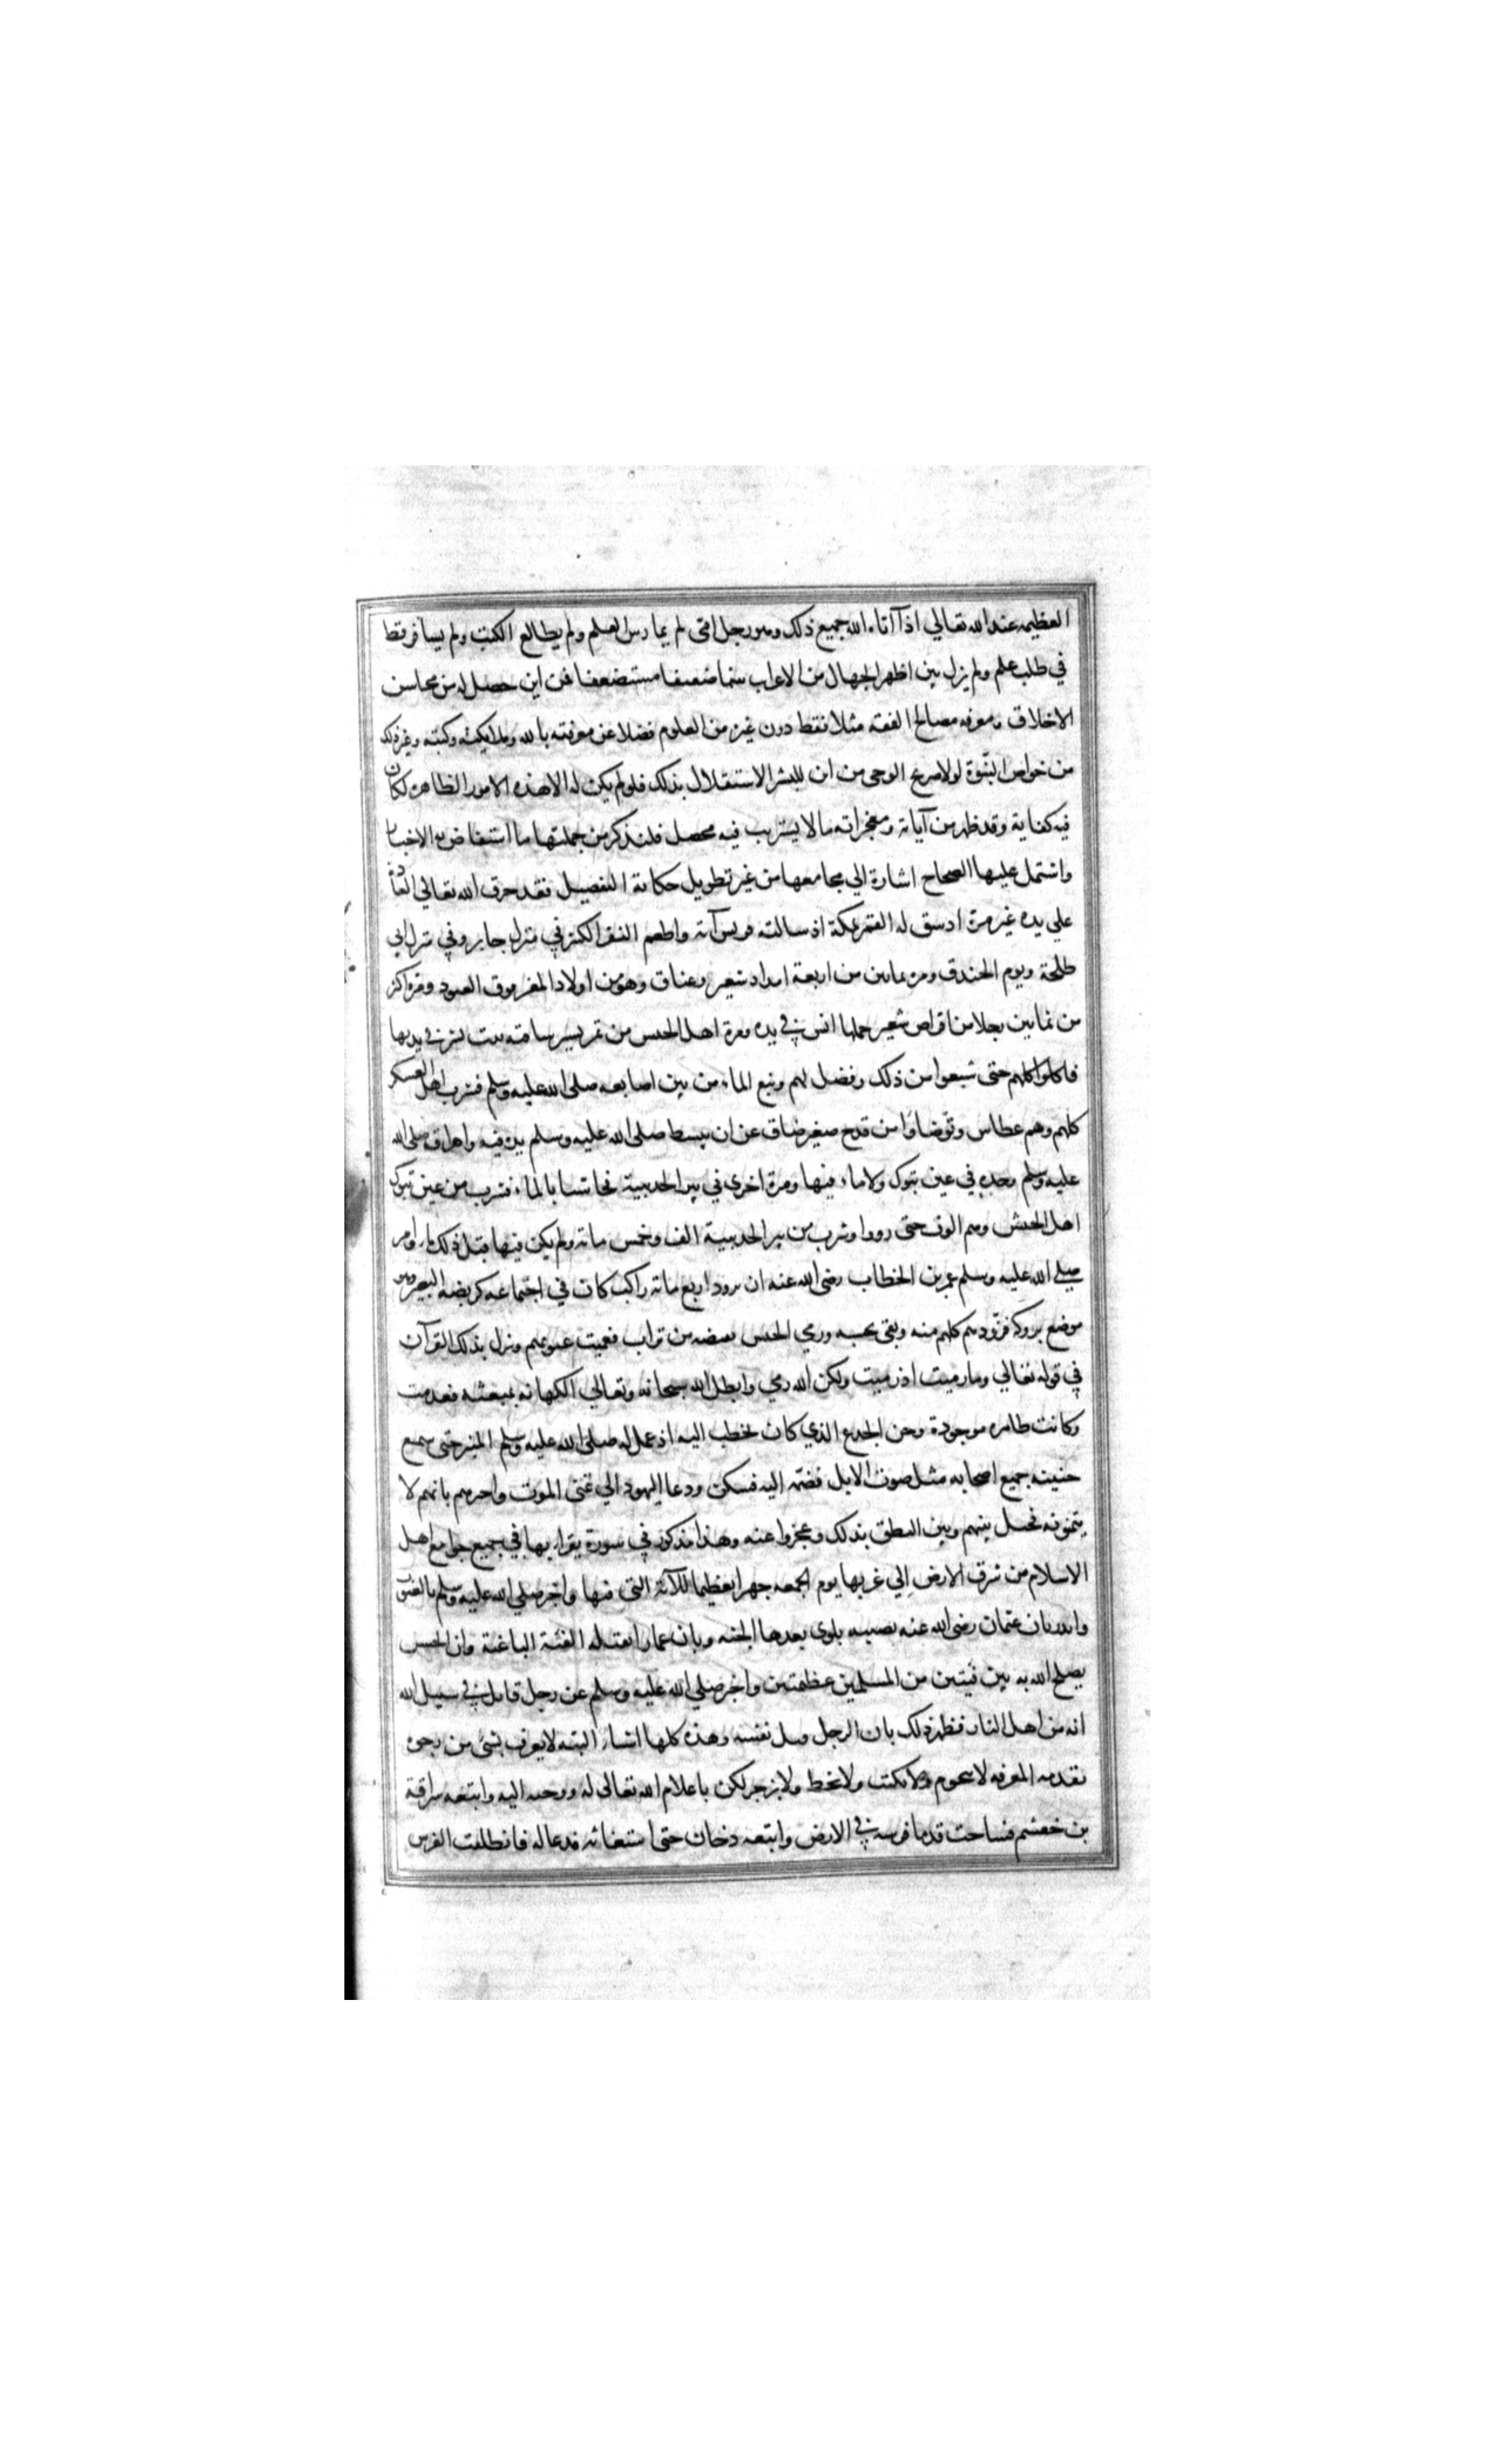 العظيمه عند الله تعالي اذا آتاه الله جميع ذلك وهو رجل امي لم يمارس العلم ولم يطالع الكتب ولم يسافر قط
في طلب علم ولم يزل بين اظهر الجهال من الاعراب يتما ضعيفا مستضعفا فمن اين حصل له من محاسن
الاخلاق ومعرفه مصالح الفقه مثلا فقط دون غيره من العلوم فضلا عن معرفته بالله وملائكته وكتبه وغير ذلك
من خواص النبوة لولا صريح الوحي من ان للبشر الاستقلال بذلك فلو لم يكن له الا هذه الامور الظاهرة لكان
فيه كفاية وقد ظهر من آياته ومعجزاته ما لا يستريب فيه محصل فلنذكر من جملتها ما استفاض به الاخبار
واشتمل عليها الصحاح اشارة الي مجامعها من غير تطويل حكاية التفصيل فقد خرق الله تعالي العادة
علي يده غير مرة اذ شق له القمر بمكة اذ سالته قريش آية واطعم النفر الكثير في منزل جابر وفي منزل ابي
طلحة ويوم الخندق ومرة ثمانين من اربعة امداد شعير وعناق وهو من اولاد المعز فوق العتود ومرة اكثر
من ثمانين رجلا من اقراص شعير حملها انس في يده ومرة اهل الجيش من تمر يسير ساقته بنت بشر في يديها
فاكلوا كلهم حتى شبعوا من ذلك وفضل لهم ونبع الماء من بين اصابعه صلى الله عليه وسلم فشرب اهل العسكر
كلهم وهم عطاش وتوضاوا من قدح صغير ضاق عن ان يبسط صلى الله عليه وسلم يده فيه واهراق صلى الله
عليه وسلم وضوءه في عين تبوك ولا ماء فيها ومرة اخرى في بير الحديبية فجاشتا بالماء فشرب من عين تبوك
اهل الجيش وهم الوف حتى رووا وشرب من بير الحديبية الف وخمس مائة ولم يكن فيها قبل ذلك ماء وامر
صلي الله عليه وسلم عمر بن الخطاب رضى الله عنه ان يزود اربع مائة راكب كان في اجتماعه كربضة البعير وهو
موضع بروكه فزودهم كلهم منه وبقى بحسبه ورمي الجيش بقبضه من تراب فعميت عيونهم ونزل بذلك القرآن
في قوله تعالي وما رميت اذ رميت ولكن الله رمي وابطل الله سبحانه وتعالي الكهانه بمبعثه فعدمت
وكانت ظاهره موجودة وحن الجذع الذي كان يخطب اليه اذ عمل له صلى الله عليه وسلم المنبر حتى سمع
حنينه جميع اصحابه مثل صوت الابل فضمه اليه فسكن ودعا اليهود الي تمنى الموت واخبرهم بانهم لا
يتمنونه فحيل بينهم وبين النطق بذلك وعجزوا عنه وهذا مذكور في سورة يقراء بها في جميع جوامع اهل
الاسلام من شرق الارض الي غربها يوم الجمعه جهرا تعظيما للآية التى فيها واخبر صلي الله عليه وسلم بالغيوب
وانذر بان عثمان رضى الله عنه تصيبه بلوى بعدها الجنه وبان عمارا تقتله الفئة الباغية وان الحسن
يصلح الله به بين فئتين من المسلمين عظيمتين واخبر صلي الله عليه وسلم عن رجل قاتل في سبيل الله
انه من اهل النار فظهر ذلك بان الرجل قتل نفسه وهذه كلها اشياء البته لا يعرف بشئ من وجوه
تقدمه المعرفه لا بنجوم ولا بكتف ولا بخط ولا بزجر لكن باعلام الله تعالى له ووحيه اليه واتبعه سراقة
بن جعشم فساخت قدما فرسه في الارض واتبعه دخان حتى استغاثه فدعا له فانطلقت الفرس